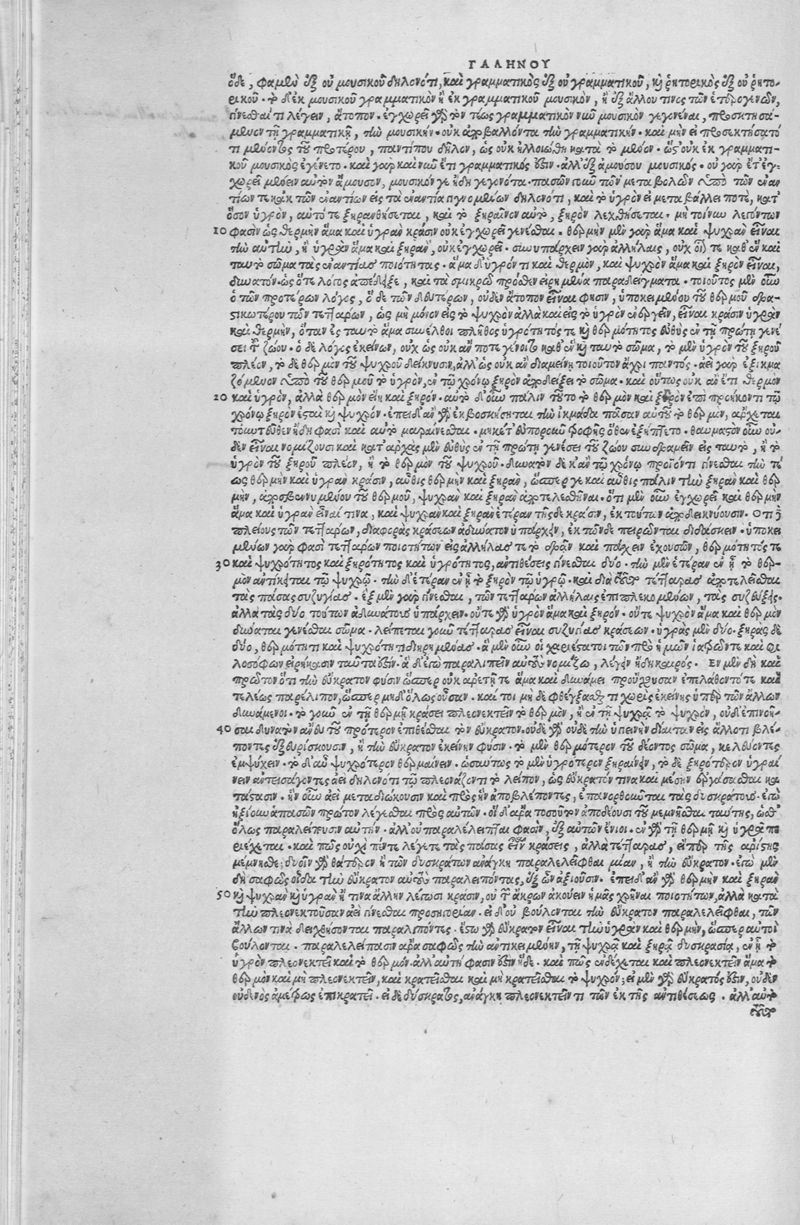 ΓΑΛΗΝΟΥ
ὅδε, φαμὲν ἐξ οὐ μουσικοῦ δηλονότι, καὶ γραμματικὸς ἐξ οὐ γραμματικοῦ, καὶ ῥητορικὸς ἐξ οὐ ῥητο-
ρικοῦ. τὸ δ' ἐκ μουσικοῦ γραμματικὸν ἢ ἐκ γραμματικοῦ μουσικὸν, ἢ ἐξ ἄλλου τινος τῶν ἑτερογενῶν,
γίνεσθαί τι λέγειν, ἄτοπον. ἐγχωρεῖ γὰρ τὸν τέως γραμματικὸν νῦν μουσικὸν γεγονέναι, προσκτησά-
μενον τῇ γραμματικῇ, τὴν μουσικήν. οὐκ ἀποβαλλόντα τὴν γραμματικήν. καὶ μὴν εἰ προσεκτήσατό
τι μένοντος τοῦ προτέρου, παντί που δῆλον, ὡς οὐκ ἠλλοιώθη κατὰ τὸ μένον. ὥστ' οὐκ ἐκ γραμματι-
κοῦ μουσικὸς ἐγένετο. καὶ γὰρ καὶ νῦν ἔτι γραμματικός ἐστιν. ἀλλ' ἐξ ἀμούσου μουσικός. οὐ γὰρ ἔτ' ἐγ-
χωρεῖ μένειν αὐτὸν ἄμουσον, μουσικόν γε ἤδη γεγονότα. πασῶν οὖν τῶν μεταβολῶν ὑπὸ τῶν ἐναν-
τίων τε καὶ ἐκ τῶν ἐναντίων εἰς τὰ ἐναντία γιγνομένων δηλονότι, καὶ τὸ ὑγρὸν εἰ μεταβάλλει ποτὲ, καθ'
ὅσον ὑγρὸν, αὐτό τε ξηρανθήσεται, καὶ τὸ ξηραῖνον αὐτὸ, ξηρὸν λεχθήσεται. μὴ τοίνυν λεγόντων
10 φασὶν ὡς θερμὴν ἅμα καὶ ὑγρὰν κρᾶσιν οὐκ ἐγχωρεῖ γενέσθαι. θερμὴν μὲν γὰρ ἅμα καὶ ψυχρὰν εἶναι
τὴν αὐτὴν, ἢ ὑγρὰν ἅμα καὶ ξηρὰν, οὐκ ἐγχωρεῖ. συνυπάρχειν γὰρ ἀλλήλαις, οὐχ οἷόν τε καθ' ἓν καὶ
ταυτὸ σῶμα τὰς ἐναντίας ποιότητας. ἅμα δ' ὑγρόν τι καὶ θερμὸν, καὶ ψυχρὸν ἅμα καὶ ξηρὸν εἶναι,
δυνατὸν. ὡς ὅ τε λόγος ἀπέδειξε, καὶ τὰ σμικρῷ πρόσθεν εἰρημένα παραδείγματα. τοιοῦτος μὲν οὖν
ὁ τῶν προτέρων λόγος, ὁ δὲ τῶν δευτέρων, οὐδὲν ἄτοπον εἶναι φησιν, ὑποκειμένου τοῦ θερμοῦ δρα-
στικωτέρου τῶν τεττάρων, ὡς μὴ μόνον εἰς τὸ ψυχρὸν ἀλλὰ καὶ εἰς τὸ ὑγρὸν ἐνεργεῖν, εἶναι κρᾶσιν ὑγρὰν
καὶ θερμὴν, ὅταν ἐς ταυτὸ ἅμα συνέλθοι πλῆθος ὑγρότητός τε καὶ θερμότητος εὐθὺς ἐν τῇ πρώτῃ γενέ-
σει τοῦ ζώου. ὁ δὲ λόγος ἐκείνων, οὐχ ὡς οὐκ ἄν ποτε γένοιτο καθ' ἓν καὶ ταυτὸ σῶμα, τὸ μὲν ὑγρὸν τοῦ ξηροῦ
πλέον, τὸ δὲ θερμὸν τοῦ ψυχροῦ δείκνυσιν, ἀλλ' ὡς οὐκ ἂν διαμείνῃ τοιοῦτον ἄχρι παντός. ἀεὶ γὰρ ἐξικμα-
ζόμενον ὑπὸ τοῦ θερμοῦ τὸ ὑγρὸν, ἐν τῷ χρόνῳ ξηρὸν ἀποδείξει τὸ σῶμα. καὶ οὕτως οὐκ ἂν ἔτι θερμὸν
20 καὶ ὑγρὸν, ἀλλὰ θερμὸν εἴη καὶ ξηρόν. αὐτὸ δ' οὖν πάλιν τοῦτο τὸ θερμὸν καὶ ξηρὸν ἐπὶ προήκοντι τῷ
χρόνῳ ξηρὸν ἔσται καὶ ψυχρόν. ἐπειδὰν γὰρ ἐκβοσκήσηται τὴν ἰκμάδα πᾶσαν αὐτοῦ τὸ θερμὸν, ἄρχεται
τοὐντεῦθεν ἤδη φασὶ καὶ αὐτὸ μαραίνεσθαι. μηκέτ' εὐποροῦν τροφῆς ὅθεν ἐξήπτετο. θαυμαστὸν οὖν οὐ-
δὲν εἶναι νομίζουσι καὶ κατ' ἀρχὰς μὲν εὐθὺς ἐν τῇ πρώτῃ γενέσει τοῦ ζώου συνδραμεῖν εἰς ταυτὸ, ἢ τὸ
ὑγρὸν τοῦ ξηροῦ πλέον, ἢ τὸ θερμὸν τοῦ ψυχροῦ. δυνατὸν δὲ κἀν τῷ χρόνῳ προϊόντι γίνεσθαι τὴν τέ-
ως θερμὴν καὶ ὑγρὰν κρᾶσιν, αὖθις θερμὴν καὶ ξηρὰν, ὥσπερ γε καὶ αὖθις πάλιν τὴν ξηρὰν καὶ θερ-
μὴν, ἀποσβεννυμένου τοῦ θερμοῦ, ψυχρὰν καὶ ξηρὰν ἀποτελεσθῆναι. ὅτι μὲν οὖν ἐγχωρεῖ καὶ θερμὴν
ἅμα καὶ ὑγρὰν εἶναί τινα, καὶ ψυχρὰν καὶ ξηρὰν ἑτέραν τῆσδε κρᾶσιν, ἐκ τούτων ἀποδεικνύουσιν. Ὅτι δὲ
πλείους τῶν τεττάρων, διαφορὰς κράσεων ἀδύνατον ὑπάρχειν, ἐκ τῶνδε πειρῶνται διδάσκειν. ὑποκει-
μένων γὰρ φασὶ τεττάρων ποιοτήτων εἰς ἀλλήλας τε τὸ δρᾶν καὶ πάσχειν ἐχουσῶν, θερμότητός τε
30 καὶ ψυχρότητος καὶ ξηρότητος καὶ ὑγρότητος, ἀντιθέσεις γίνεσθαι δύο. τὴν μὲν ἑτέραν ἐν ᾗ τὸ θερ-
μὸν ἀντίκειται τῷ ψυχρῷ. τὴν δ' ἑτέραν ἐν ᾗ τὸ ξηρὸν τῷ ὑγρῷ. καὶ διὰ τοῦτο τέτταρας ἀποτελεῖσθαι
τὰς πάσας συζυγίας. ἓξ μὲν γὰρ γίνεσθαι, τῶν τεττάρων ἀλλήλαις ἐπιπλεκομένων, τὰς συζεύξεις.
ἀλλὰ τὰς δύο τούτων ἀδυνάτους ὑπάρχειν. οὔτε γὰρ ὑγρὸν ἅμα καὶ ξηρόν. οὔτε ψυχρὸν ἅμα καὶ θερμὸν
δύναται γενέσθαι σῶμα. λείπεται γοῦν τέτταρας εἶναι συζυγίας κράσεων. ὑγρὰς μὲν δύο. ξηρὰς δὲ
δύο, θερμότητι καὶ ψυχρότητι διῃρημένας. ἃ μὲν οὖν οἱ χαριέστατοι τῶν πρὸ ἡμῶν ἰατρῶν τε καὶ φι
λοσόφων εἰρήκασιν ταῦτ' ἐστιν. ἃ δ' ἐγὼ παραλιπεῖν αὐτοὺς νομίζω, λέγειν ἤδη καιρός. Ἓν μὲν δὴ καὶ
πρῶτον ὅτι τὴν εὔκρατον φύσιν ὥσπερ οὐκ ἀρετῇ τε ἅμα καὶ δυνάμει προὔχουσαν ἐπελάθοντό τε καὶ
τελέως παρέλιπον, ὥσπερ μηδ' ὅλως οὖσαν. καί τοι μηδὲ φθέγξασθαί τι χωρὶς ἐκείνης ὑπὲρ τῶν ἄλλων
δυνάμενοι. τὸ γοῦν ἐν τῇ θερμῇ κράσει πλεονεκτεῖν τὸ θερμὸν, ἢ ἐν τῇ ψυχρᾷ τὸ ψυχρὸν, οὐδ' ἐπινοῆ-
40 σαι δυνατὸν ἄνευ τοῦ πρότερον ἐπιθέσθαι τὸν εὔκρατον. οὐδὲ γὰρ οὐδὲ τὴν ὑγιεινὴν δίαιταν εἰς ἄλλό τι βλέ-
ποντες ἐξευρίσκουσιν, ἢ τὴν εὔκρατον ἐκείνην φύσιν. τὸ μὲν θερμότερον τοῦ δέοντος σῶμα, κελεύοντες
ἐμψύχειν. τὸ δ' αὖ ψυχρότερον θερμαίνειν. ὡσαύτως τὸ μὲν ὑγρότερον ξηραίνειν, τὸ δὲ ξηρότερον ὑγραί
νειν ἀντεισάγοντες ἀεὶ δηλονότι τῷ πλεονάζοντι τὸ λεῖπον, ὡς εὔκρατόν τινα καὶ μέσην ἐργάσασθαι κα
τάστασιν. ἣν οὖν ἀεὶ μεταδιώκουσιν καὶ πρὸς ἣν ἀποβλέποντες, ἐπανορθοῦνται τὰς δυσκράτους. ἐγὼ
ἠξίουν ἁπασῶν πρῶτον λέγεσθαι πρὸς αὐτῶν. οἱ δ' ἄρα τοσοῦτον ἀποδέουσι τοῦ μεμνῆσθαι ταύτης, ὥσθ'
ὅλως παραλείπουσιν αὐτήν. ἀλλ' οὐ παραλέλειπται φασὶν, ἐξ αὐτῶν ἔνιοι. ἐν γὰρ τῇ θερμῇ καὶ ὑγρᾷ πε
ριέχεται. καὶ πῶς οὐχὶ πέντε λέγετε τὰς πάσας εἶναι κράσεις, ἀλλὰ τέτταρας, εἴπερ τῆς ἀρίστης
μέμνησθε; δυοῖν γὰρ θάτερον ἢ τῶν δυσκράτων ἀνάγκη παραλελεῖφθαι μίαν, ἢ τὴν εὔκρατον. ἐγὼ μὲν
δὴ σαφῶς οἶδα τὴν εὔκρατον αὐτοὺς παραλείποντας, ἐξ ὧν ἀξιοῦσιν. ἐπειδὰν γὰρ θερμὴν καὶ ξηρὰν
50 καὶ ψυχρὰν καὶ ὑγρὰν ἤ τινα ἄλλην λέγωσι κρᾶσιν, οὐ τῶν ἄκρων ἀκούειν ἡμᾶς χρῆναι ποιοτήτων, ἀλλὰ κατὰ
τὴν πλεονεκτοῦσαν ἀεὶ γίνεσθαι προσηγορίαν. εἰ δ' οὐ βούλονται τὴν εὔκρατον παραλελεῖφθαι, τῶν
ἄλλων τινὰ δειχθήσονται παραλιπόντες. ἔστω γὰρ εὔκρατον εἶναι τὴν ὑγρὰν καὶ θερμὴν, ὥσπερ αὐτοὶ
βούλονται. παραλελείπασιν ἄρα σαφῶς τὴν ἀντικειμένην, τῇ ψυχρᾷ καὶ ξηρᾷ δυσκρασίᾳ, ἐν ᾗ τὸ
ὑγρὸν πλεονεκτεῖ καὶ τὸ θερμόν. ἀλλ' αὐτή φασιν ἐστὶν ἥδε. καὶ πῶς ἐνδέχεται καὶ πλεονεκτεῖν ἅμα τὸ
θερμὸν καὶ μὴ πλεονεκτεῖν, καὶ κρατεῖσθαι καὶ μὴ κρατεῖσθαι τὸ ψυχρόν; εἰ μὲν γὰρ εὔκρατός ἐστιν, οὐδὲν
οὐδενὸς ἀμέτρως ἐπικρατεῖ. εἰ δὲ δύσκρατος, ἀνάγκη πλεονεκτεῖν τι τῶν ἐκ τῆς ἀντιθέσεως. ἀλλ' αὐτὸ
τοῦτο